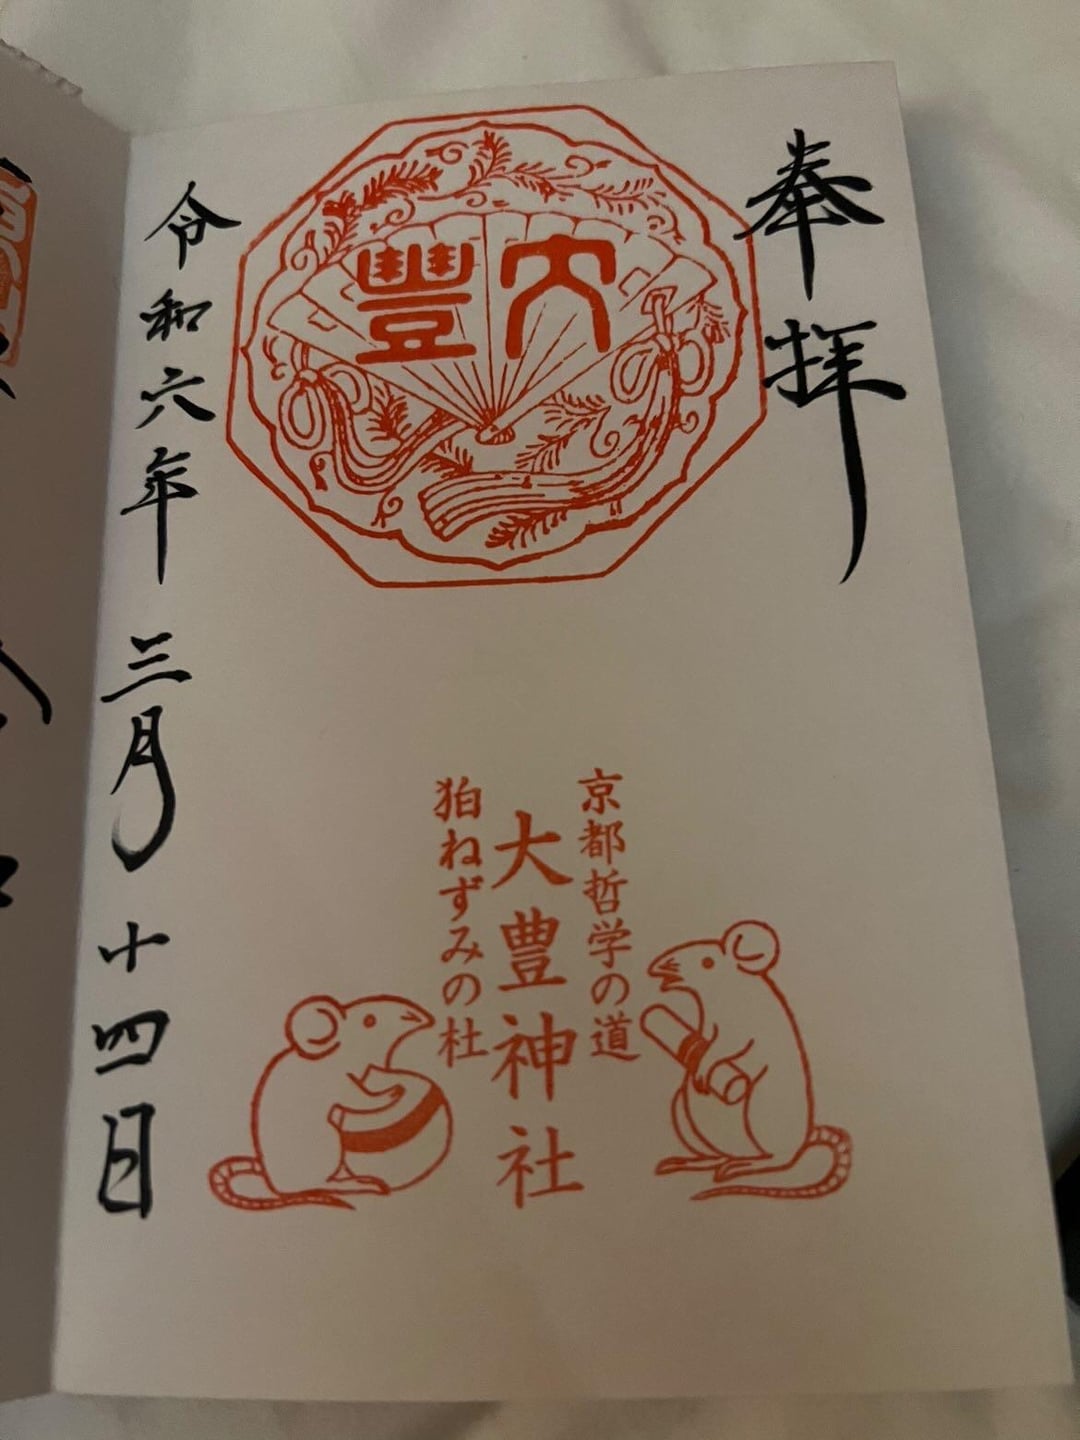 奉拝
大豊
京都哲学の道
大豊神社
狛ねずみの社
令和六年 三月 十四日